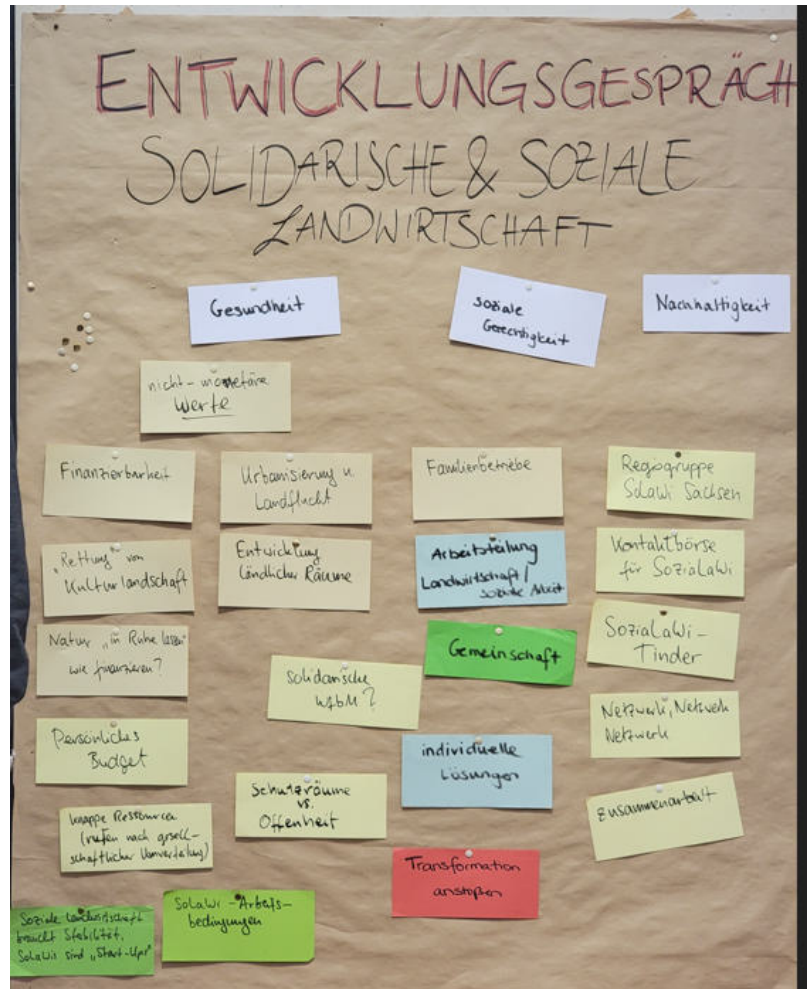 ENTWICKLUNGSGESPRÄCH
SOLIDARISCHE & SOZIALE
LANDWIRTSCHAFT
Gesundheit
soziale
Gerechtigkeit
Nachhaltigkeit
nicht-monetäre
Werte
Finanzierbarkeit
Urbanisierung u.
Landflucht
Familienbetriebe
Regiogruppe
SoLaWi Sachsen
"Rettung" von
Kulturlandschaft
Entwicklung
Ländlicher Räume
Arbeitsteilung
Landwirtschaft/
soziale Arbeit
Kontaktbörse
für SoziaLaWi
Natur „in Ruhe lassen"
wie finanzieren?
Gemeinschaft
SoziaLaWi-
Tinder
Solidarische
WfbM?
Persönliches
Budget
individuelle
Lösungen
Netzwerk, Netzwerk
Netzwerk
Schutzräume
vs.
Offenheit
knappe Ressourcen
(rufen nach gesell-
schaftlicher Umverteilung)
Zusammenarbeit
Transformation
anstoßen
Soziale Landwirtschaft
braucht Stabilität,
SoLaWis sind „Start-Ups"
SoLaWi-Arbeits-
bedingungen